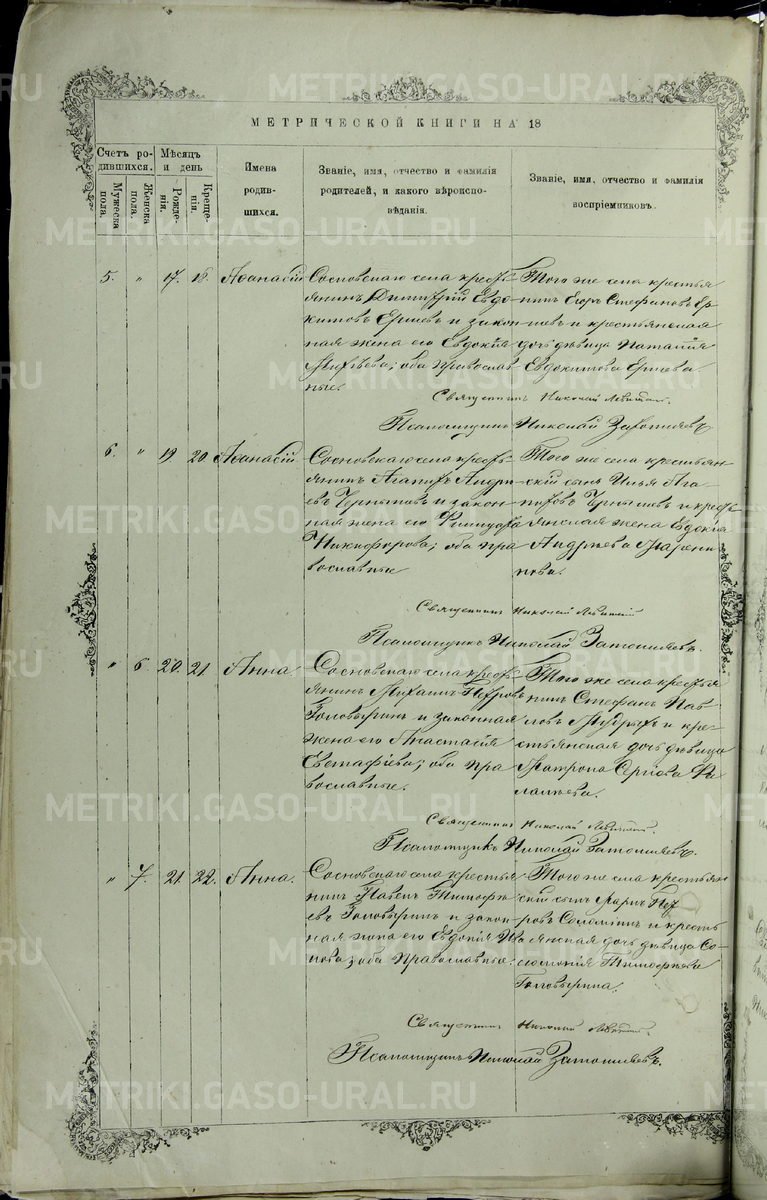 METRIKI.GASO-URAL.RU
МЕТРИЧЕСКОЙ КНИГИ НА 18
Счетъ ро-
дившихся.
Мужеска
пола.
Женска
пола.
Мѣсяцъ
и день
Рожде-
нія.
Креще-
нія.
Имена
родив-
шихся.
Званіе, имя, отчество и фамилія
родителей, и какого вѣроиспо-
вѣданія.
Званіе, имя, отчество и фамилія
воспріемниковъ.
5. " 17. 18. Аѳанасій
Сосновскаго села кресть-
янинъ Димитрій Евдо-
кимовъ Ершевъ и закон-
ная жена его Евдокія
оба православ
ные.
Того же села крестья
нинъ Егоръ Стефановъ Ер
шевъ и крестьянская
дочь дѣвица Наталія
Евдокимова Ершева.
Священникъ Николай
Псаломщикъ Николай
6. " 19 20. Аѳанасій
Сосновскаго села кресть-
янинъ Агапитъ Андре
евъ Чернышевъ и закон-
ная жена его
Никифорова; оба пра
вославные
Того же села крестьян
скій сынъ Илья Ага
питовъ Чернышевъ и кресть
янская жена Евдокія
Андреева
Священникъ Николай
Псаломщикъ Николай
" 6. 20. 21. Анна.
Сосновскаго села кресть
янинъ Михаилъ Петровъ
Головыринъ и законная
жена его Анастасія
Евстафіева; оба пра
вославные.
Того же села крестья
нинъ Стефанъ Пав
ловъ Мудрыхъ и кре-
стьянская дочь дѣвица
Матрона Сергіева
Священникъ Николай
Псаломщикъ Николай
" 7. 21. 22. Анна.
Сосновскаго села крестья
нинъ Павелъ Тимофе
евъ Головыринъ и закон
ная жена его Евдокія
оба православные.
Того же села крестьян
скій сынъ Пет
ровъ и кресть
янская дочь дѣвица Со
ломонія Тимофеева
Головырина.
Священникъ Николай
Псаломщикъ Николай